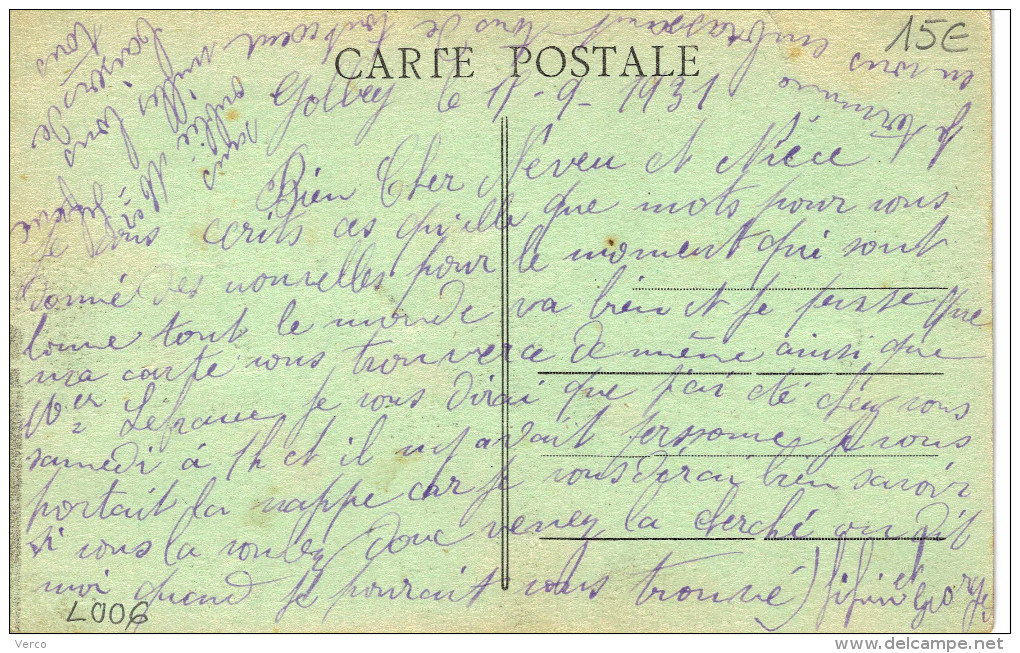 15€
CARTE POSTALE
Golbey le 11-9-1931
Bien Cher Neveu et Nièce
Je vous ecrits ces quelle que mots pour vous
donné des nouvelles pour le moment qui sont
bonne tout le monde va bien et je pense que
ma carte vous trouvera de même ainsi que
Mer Lefranc, je vous dirai que j'ai été chez vous
samedi à 1h et il n'y avait personne je vous
portait la nappe car je vous dirai bien savoir
si vous la voulez donc venez la cherché ou dit
moi quand je pourrait vous trouvé) Fifine et Georges
Je termine
en vous embrassant tous de tout coeur
mille bons
baisers de
tous
sans oublié Mer
L006
Verco
delcampe.net